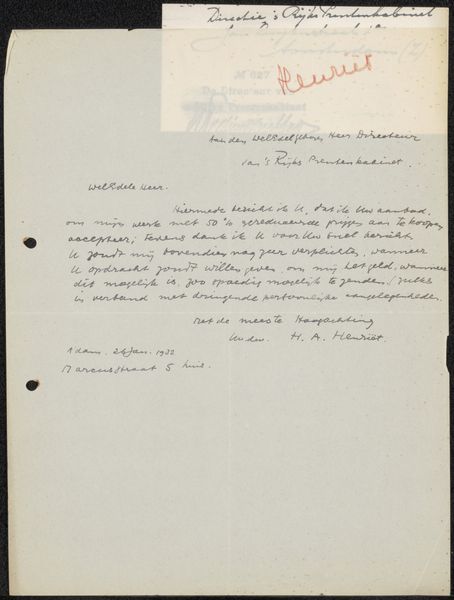 Directie 's Rijks Prentenkabinet
Amsterdam (Z)
Nº 627
De Directeur v
Prentenkabinet
Henriët
Aan den WelEdelgeboren Heer Directeur
van 's Rijks Prentenkabinet.
WelEdele Heer.
Hiermede bericht ik U, dat ik Uw aanbod,
om mijn werk met 50% gereduceerde prijzen aan te koopen
accepteer; tevens dank ik U voor Uw snel bericht.
U zoudt mij bovendien nog zeer verplichten, wanneer
U opdracht zoudt willen geven, om mij het geld, wanneer
dit mogelijk is, zoo spoedig mogelijk te zenden, zulks
in verband met dringende persoonlijke aangelegenheden.
Met de meeste Hoogachting
Uw dw. H. A. Henriët.
A'dam. 26 Jan. 1932
Marcusstraat 5 huis.